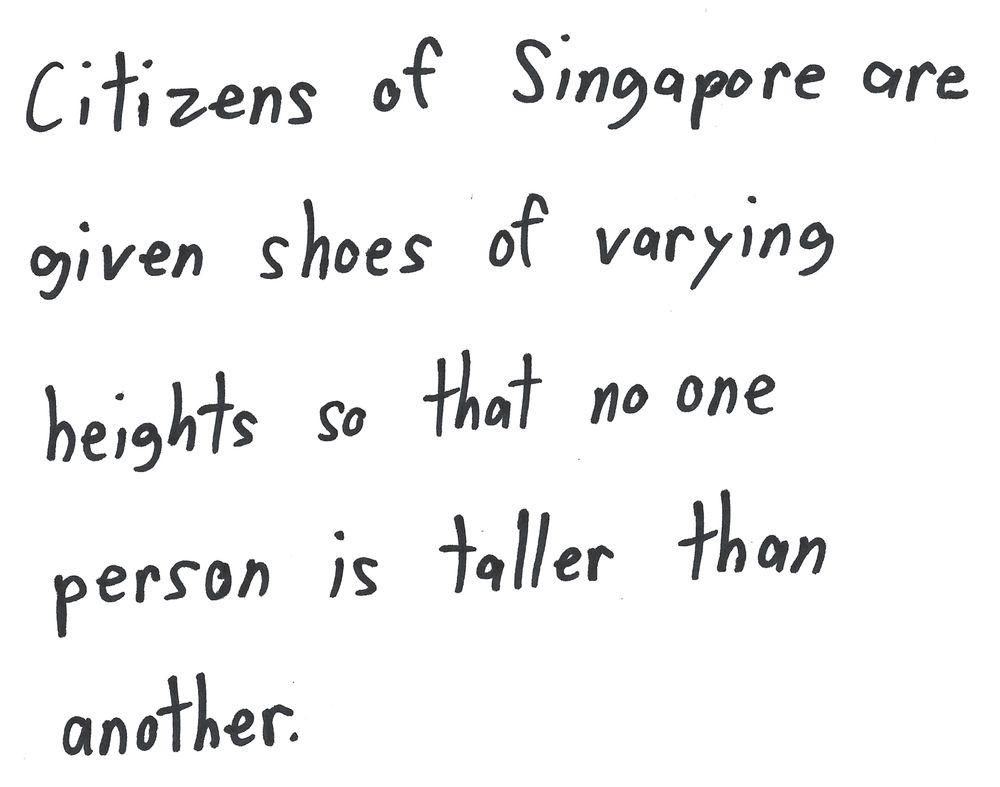 Citizens of Singapore are
given shoes of varying
heights so that no one
person is taller than
another.